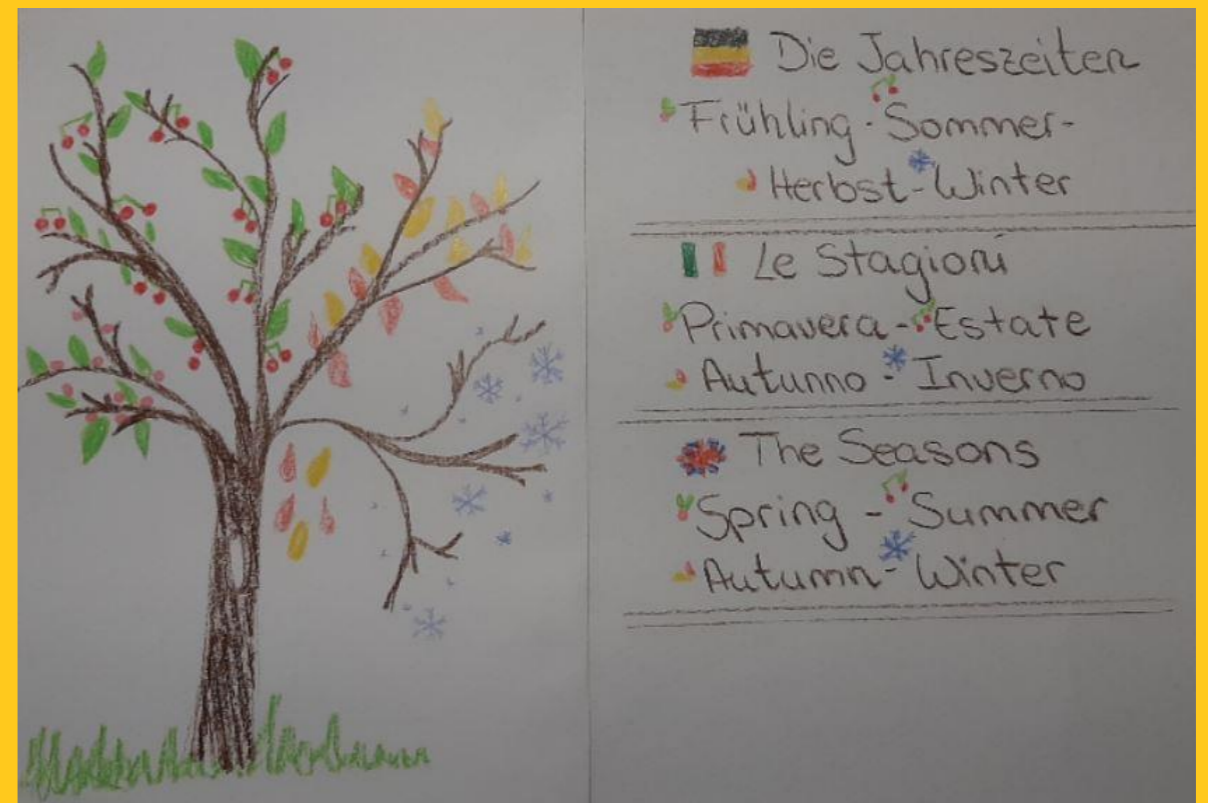 Die Jahreszeiten
Frühling - Sommer -
Herbst - Winter
Le Stagioni
Primavera - Estate
Autunno - Inverno
The Seasons
Spring - Summer
Autumn - Winter